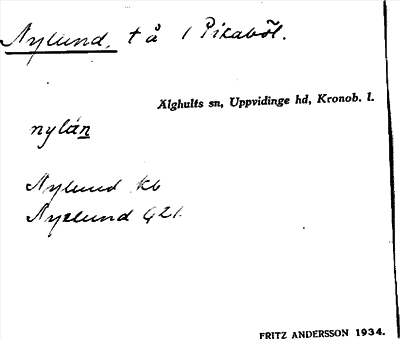 Nylund, t å / Pikaböl.
Älghults sn, Uppvidinge hd, Kronob. l.
nylán
Nylund kb
Nyelund G21.
FRITZ ANDERSSON 1934.